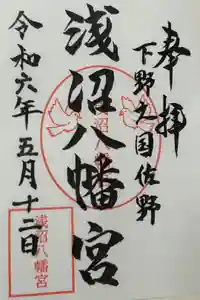 奉拝
下野之国佐野
浅沼八幡宮
令和六年五月十二日
浅沼八幡宮